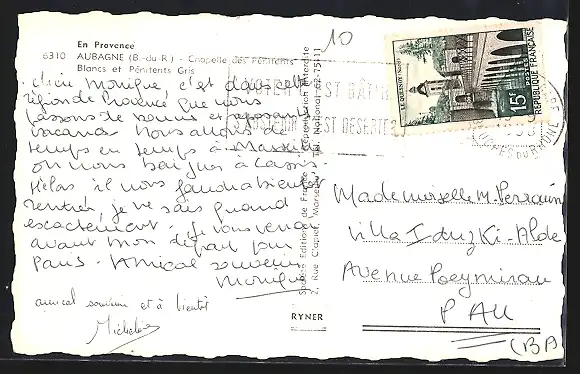 En Provence
6310 AUBAGNE (B.-du-R.) - Chapelle des Pénitents
Blancs et Pénitents Gris
Monique, c'est dans cette
région de Provence que nous
passons de bonnes et
vacances. Nous allons de
temps en temps à Marseille
on nous baigne à Cassis.
Hélas il nous faudra bientôt
rentrer, je ne sais quand
exactement. Je vous verrai
avant mon départ pour
Paris. Amical souvenir
Monique
amical souvenir et à bientôt
Michel
Société Editions de France - Reproduction interdite
2, Rue C'apier, Marseille - Tél. National 62-75-11
RYNER
10
LE QUESNOY (NORD)
15F
POSTES
REPUBLIQUE FRANÇAISE
BOUCHES DU RHONE
Mademoiselle M. Perrain
Villa Iduzki-Alde
Avenue Poeymirau
PAU
(BP)